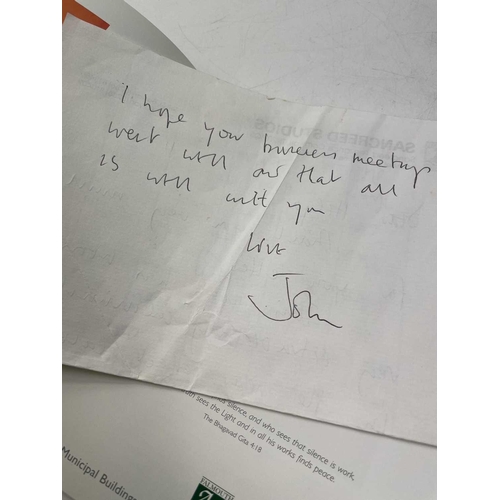 SANCREED STUDIOS
I hope your business meetings
went well and that all
is well with you
love
John
silence, and who sees that silence is work,
sees the Light and in all his works finds peace.
The Bhagavad Gita 4:18
Municipal Buildings
FALMOUTH